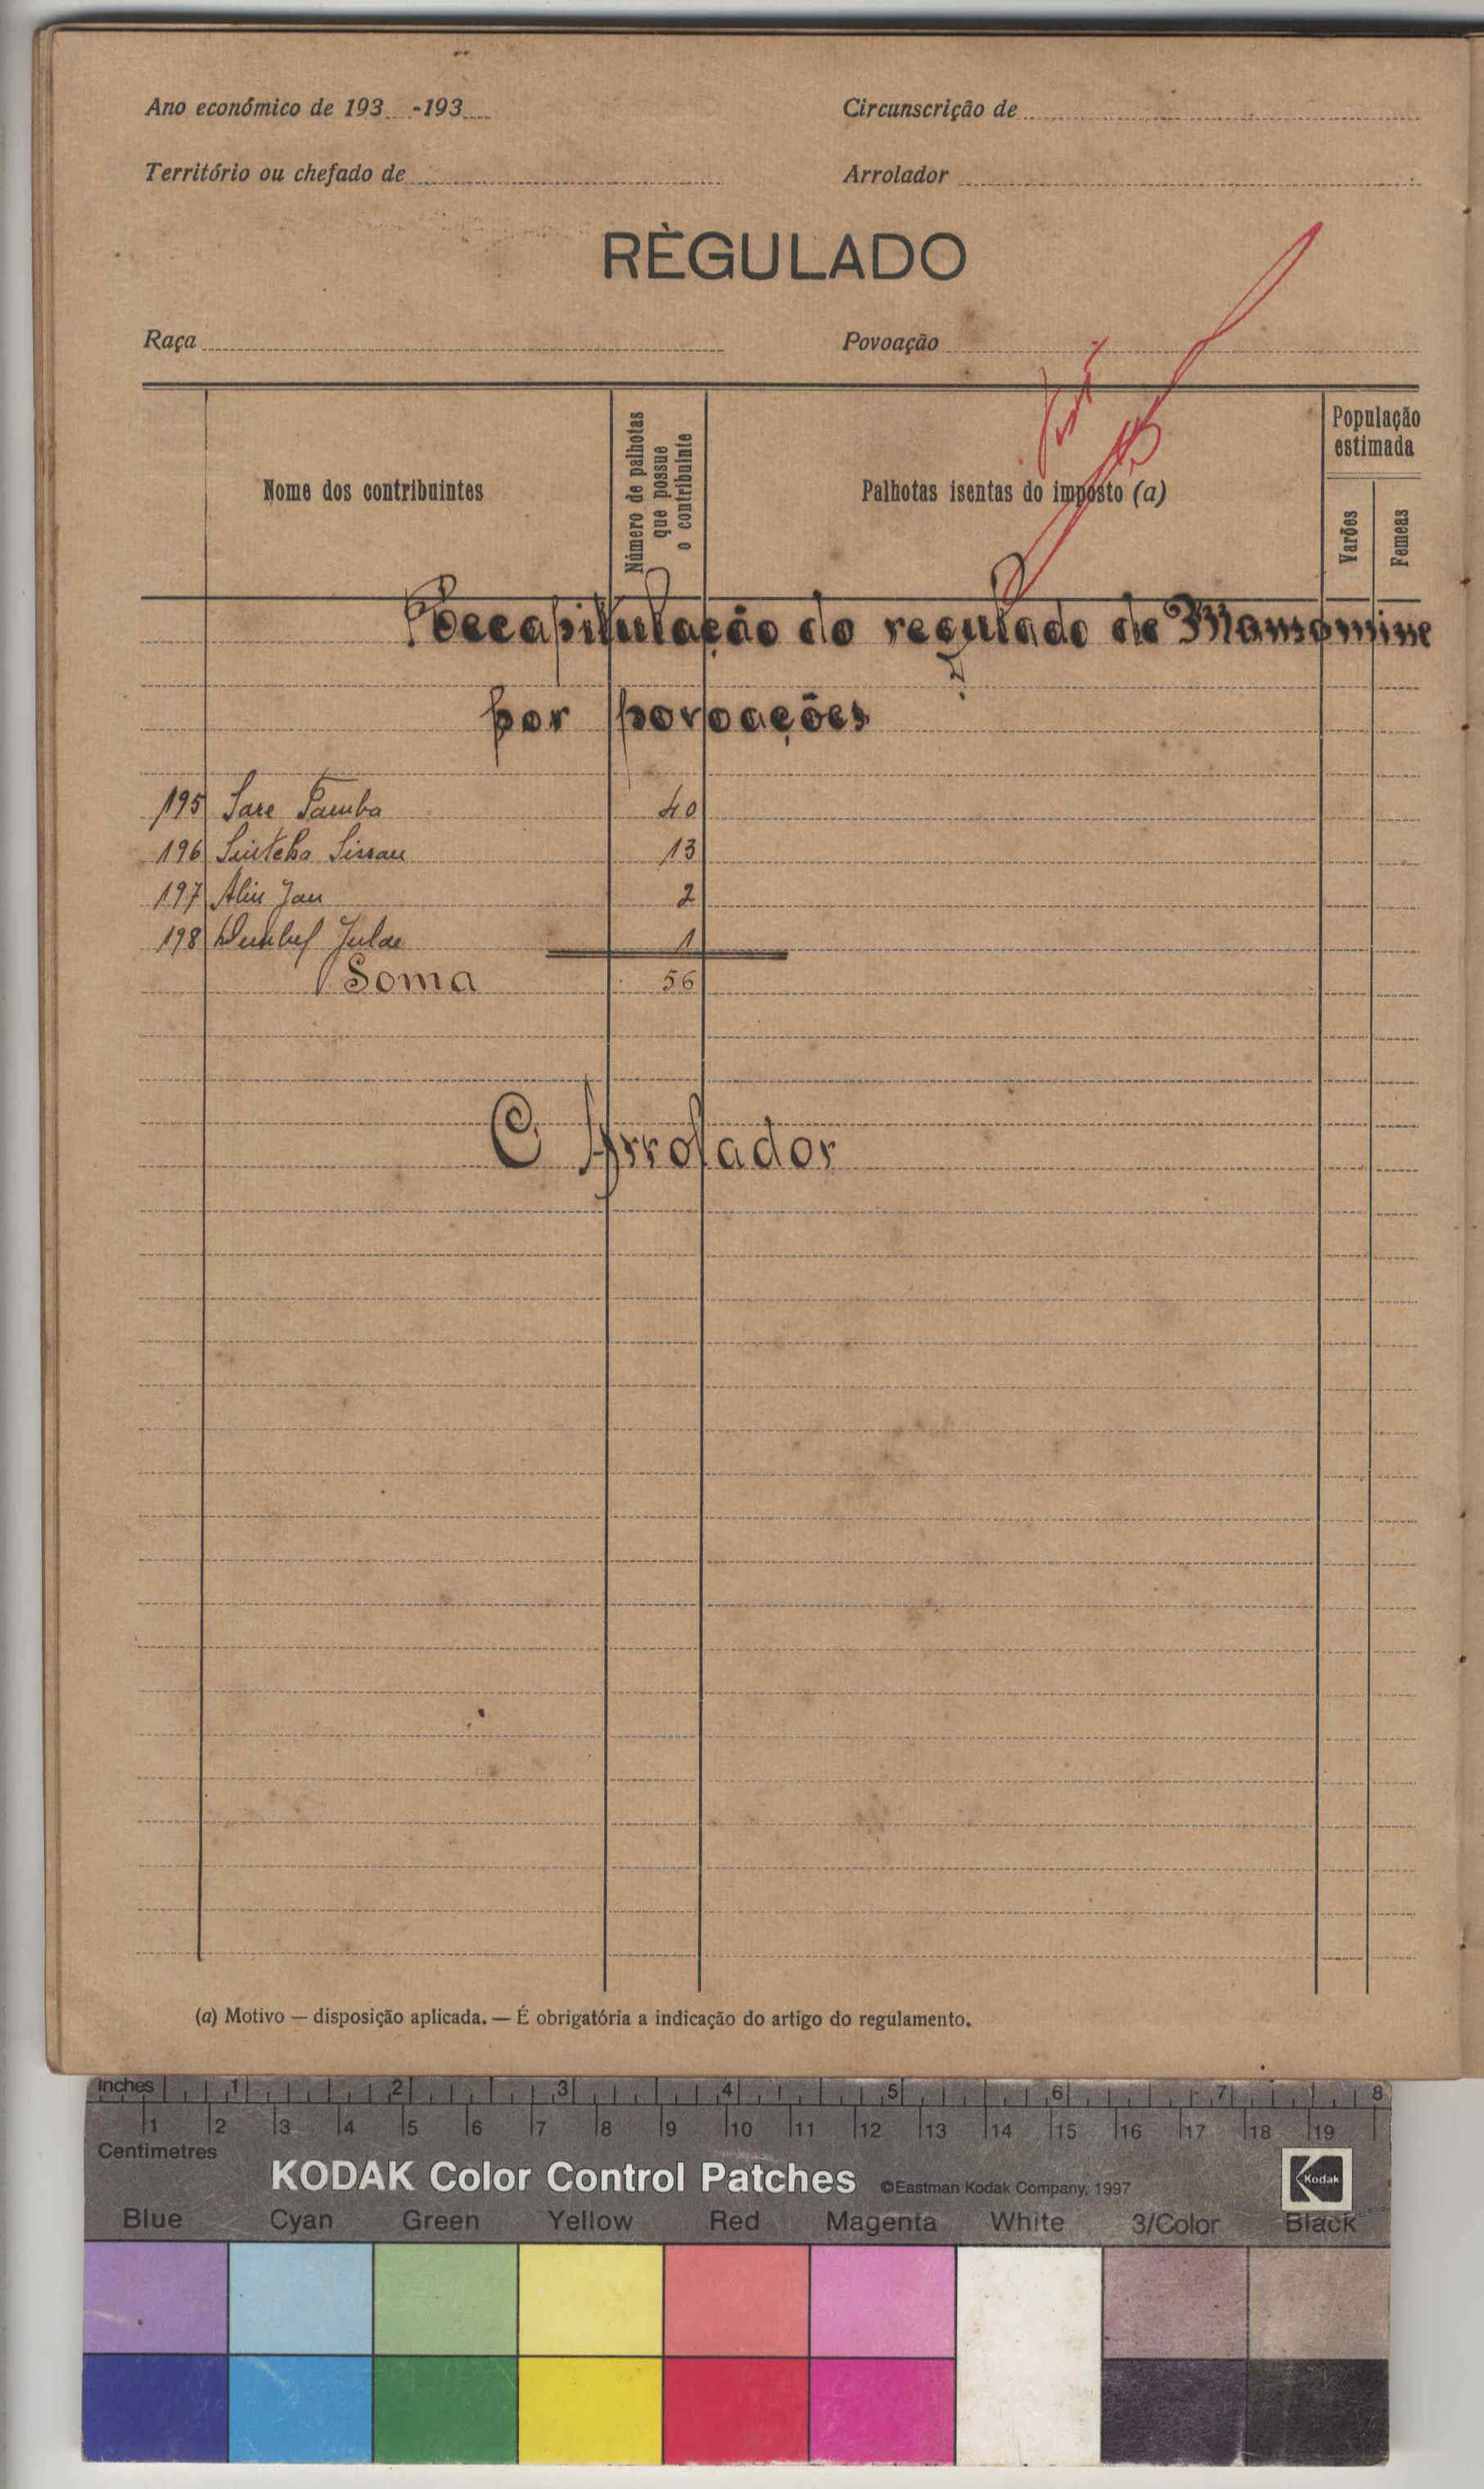 Ano económico de 193 -193
Circunscrição de
Território ou chefado de
Arrolador
RÈGULADO
Raça
Povoação
Nome dos contribuintes
Número de palhotas que possue o contribuinte
Palhotas isentas do imposto (a)
População estimada
Varões
Femeas
Recapitulação do regulado de Mansomine
por povoações
195 Sare Tamba 40
196 Sissau 13
197 Aliu Jau 2
198 Julde 1
Soma 56
O Arrolador
(a) Motivo — disposição aplicada. — É obrigatória a indicação do artigo do regulamento.
inches 1 2 3 4 5 6 7 8
1 2 3 4 5 6 7 8 9 10 11 12 13 14 15 16 17 18 19
Centimetres
KODAK Color Control Patches ©Eastman Kodak Company, 1997 Kodak
Blue Cyan Green Yellow Red Magenta White 3/Color Black